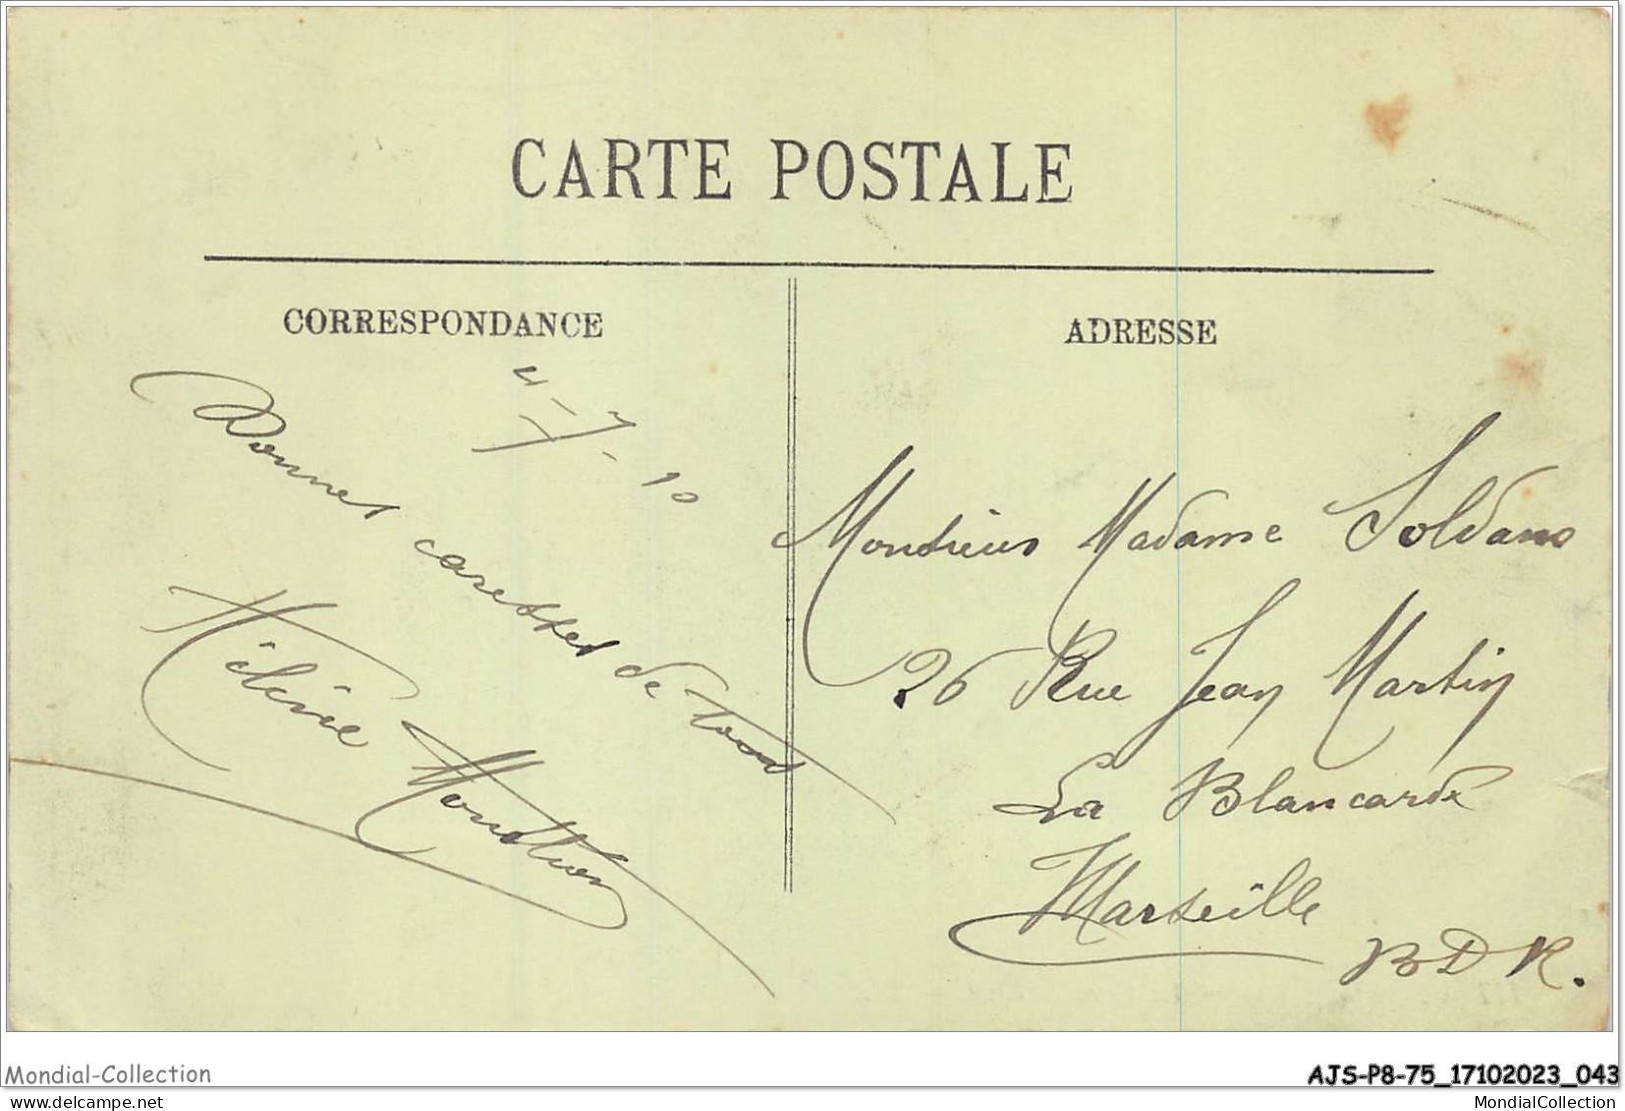 CARTE POSTALE
CORRESPONDANCE
ADRESSE
4-7-10
Bonnes caresses de tous
Hélène
Monsieur Madame Soldano
26 Rue Jean Martin
La Blancarde
Marseille
BDR.
Mondial-Collection
AJS-P8-75_17102023_043
www.delcampe.net
MondialCollection